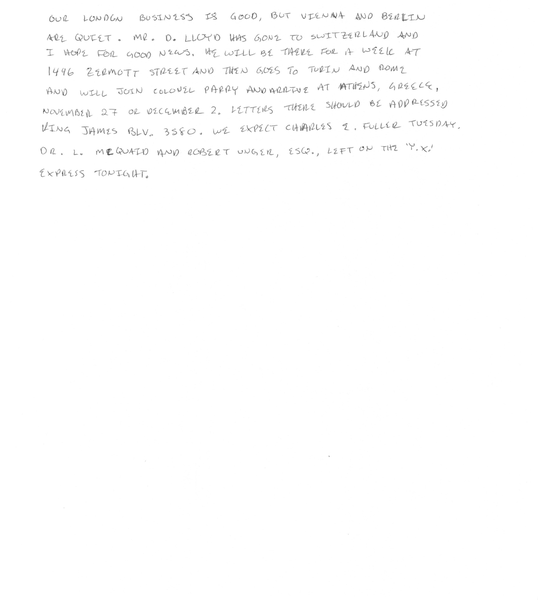 OUR LONDON BUSINESS IS GOOD, BUT VIENNA AND BERLIN
ARE QUIET. MR. D. LLOYD HAS GONE TO SWITZERLAND AND
I HOPE FOR GOOD NEWS. HE WILL BE THERE FOR A WEEK AT
1496 ZERMOTT STREET AND THEN GOES TO TURIN AND ROME
AND WILL JOIN COLONEL PARRY AND ARRIVE AT ATHENS, GREECE,
NOVEMBER 27 OR DECEMBER 2. LETTERS THERE SHOULD BE ADDRESSED
KING JAMES BLV. 3580. WE EXPECT CHARLES E. FULLER TUESDAY.
DR. L. MCQUAID AND ROBERT UNGER, ESQ., LEFT ON THE "Y.X."
EXPRESS TONIGHT.